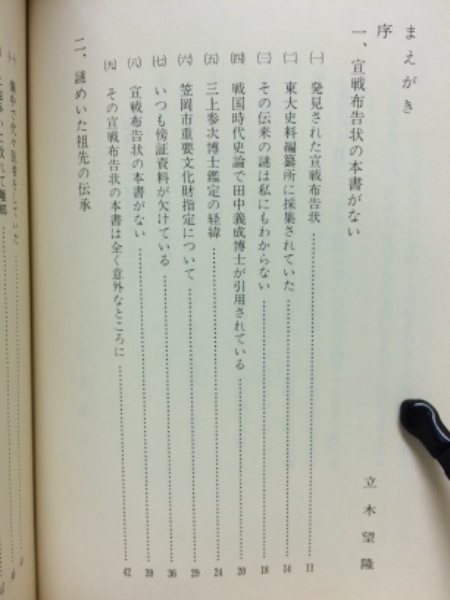 まえがき
序 立木望隆
一、宣戦布告状の本書がない
㈠ 発見された宣戦布告状 11
㈡ 東大史料編纂所に採集されていた 14
㈢ その伝来の謎は私にもわからない 18
㈣ 戦国時代史論で田中義成博士が引用されている 20
㈤ 三上参次博士鑑定の経緯 24
㈥ 笠岡市重要文化財指定について 29
㈦ いつも傍証資料が欠けている 36
㈧ 宣戦布告状の本書がない 39
㈨ その宣戦布告状の本書は全く意外なところに 42
二、謎めいた祖先の伝承